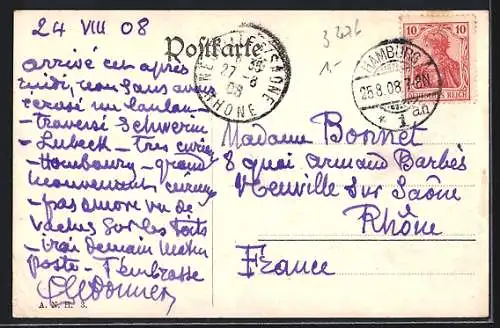 24 VIII 08
Postkarte
3276
1.-
arrivé cet après
midi, nous sans avoir
- traversé Schwerin
- Lubeck - très curieux
- Hombourg - grand
mouvement curieux
- pas encore vu de
vaches sur les toits
- irai demain matin
poste - T'embrasse
A. N. H. 3.
NEUVILLE S/SAONE
27 -8
08
RHONE
HAMBURG
25.8.08.7-8N.
* 1 an
10 10
DEUTSCHES REICH
Madame Bonnet
8 quai Armand Barbès
Neuville sur Saône
Rhône
France